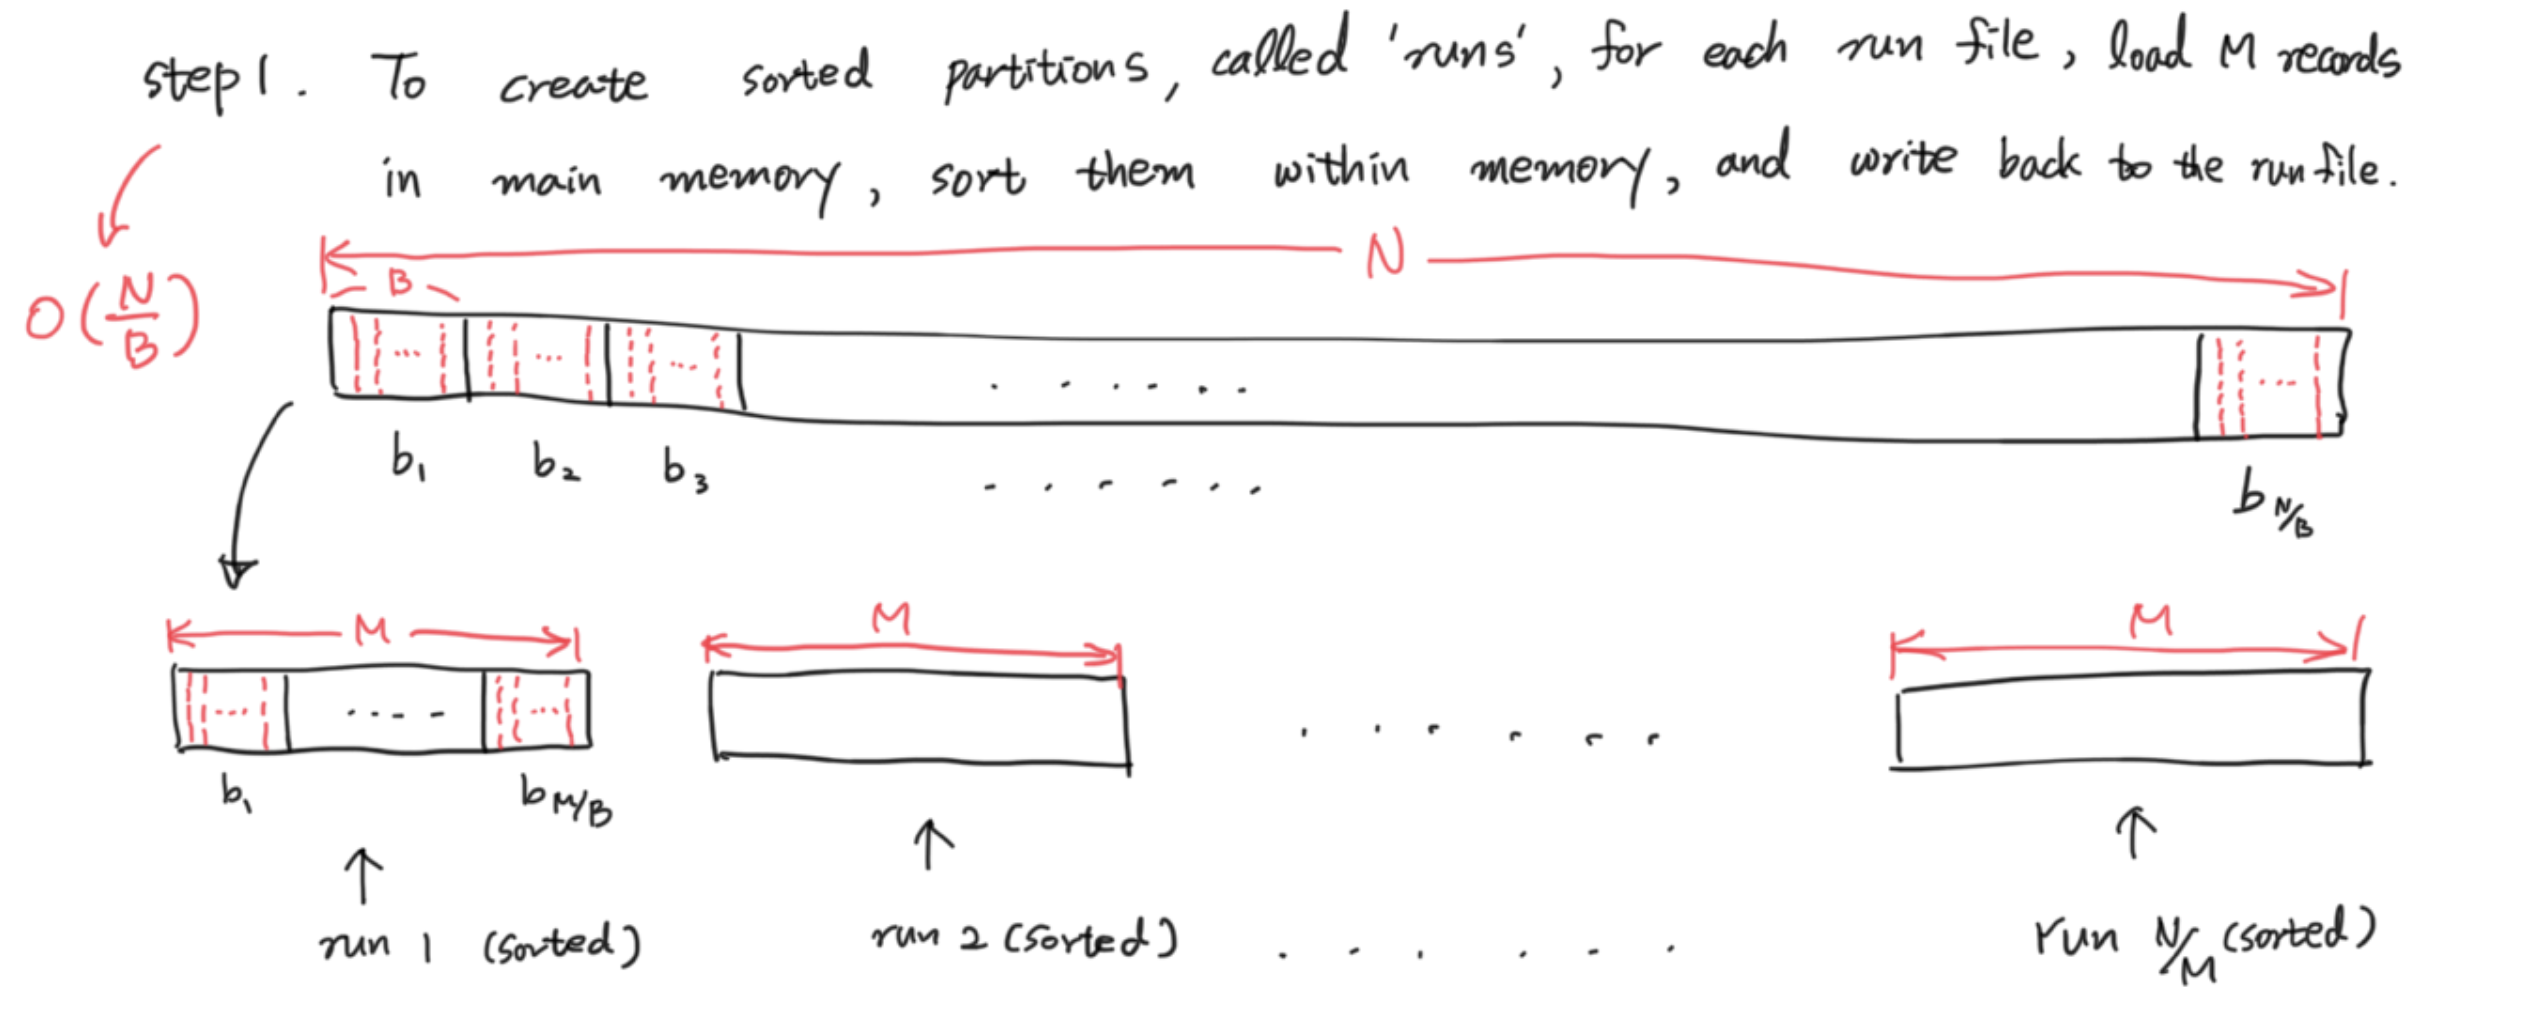 step 1. To create sorted partitions, called 'runs', for each run file, load M records
in main memory, sort them within memory, and write back to the run file.
N
O(N/B)
B
b1 b2 b3 ...... bN/B
M M M
b1 .... bM/B
run 1 (sorted) run 2 (sorted) ...... run N/M (sorted)